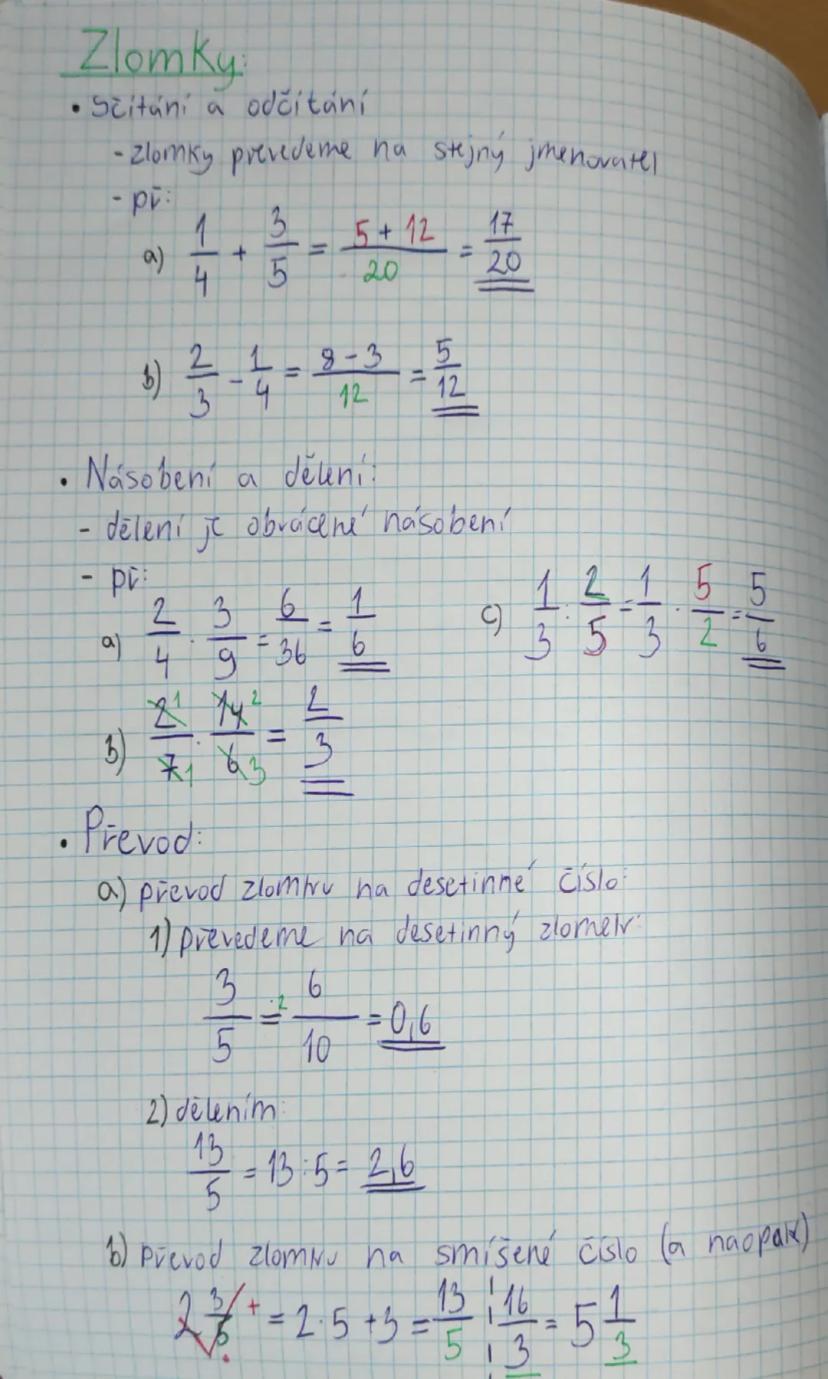 Zlomky:
• Sčítání a odčítání
- zlomky převedeme na stejný jmenovatel
- př:
a) 1/4 + 3/5 = (5 + 12)/20 = 17/20
b) 2/3 - 1/4 = (8 - 3)/12 = 5/12
• Násobení a dělení:
- dělení je obrácené násobení
- př:
a) 2/4 · 3/9 = 6/36 = 1/6
c) 1/3 : 2/5 = 1/3 · 5/2 = 5/6
b) 2 1/7 1 · 14 2/6 3 = 2/3
• Převod:
a) převod zlomku na desetinné číslo:
1) převedeme na desetinný zlomek:
3/5 =·2 6/10 = 0,6
2) dělením:
13/5 = 13 : 5 = 2,6
b) převod zlomku na smíšené číslo (a naopak)
2 3/5 + · = 2 · 5 + 3 = 13/5 ¦ 16/3 = 5 1/3